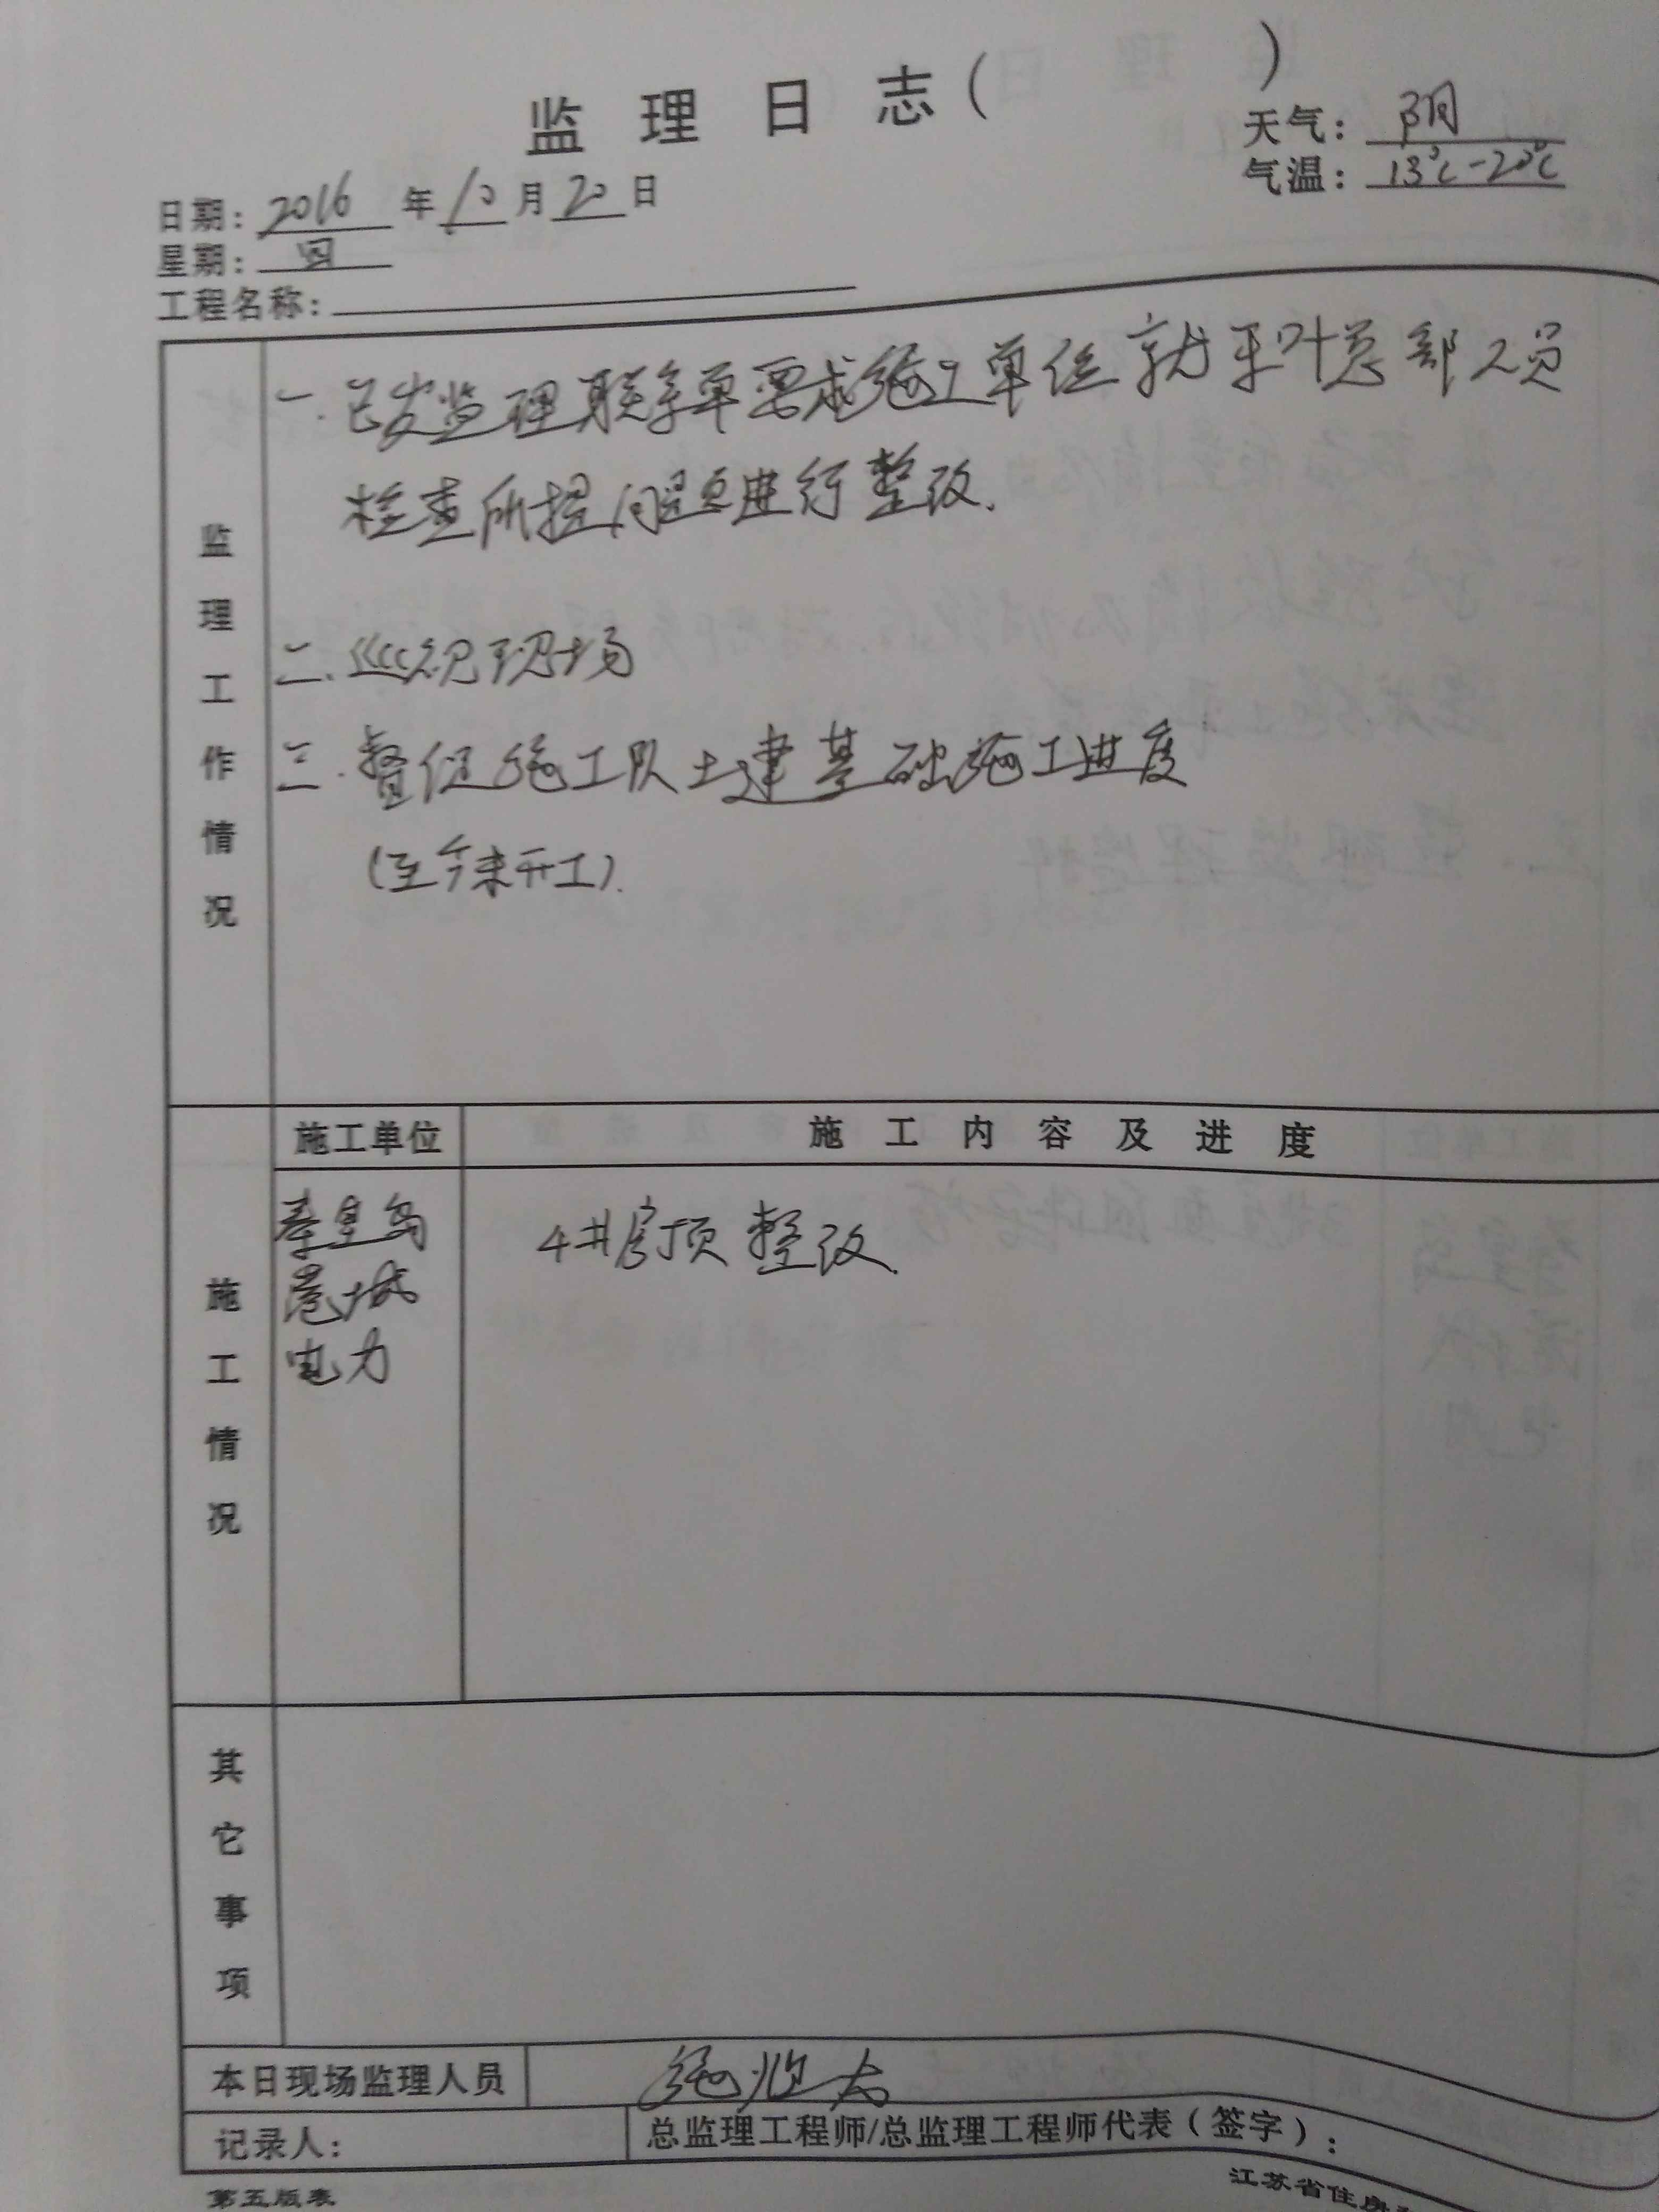 监理日志(          )
天气：阴
气温：13℃-20℃
日期：2016年10月20日
星期：四
工程名称：
监理工作情况
一.已发监理联系单要求施工单位就平叶总部人员
检查所提问题点进行整改.
二.巡视现场
三.督促施工队土建基础施工进度
(至今未开工).
施工情况
施工单位 施工内容及进度
秦皇岛 4#房顶整改.
港城
电力
其它事项
本日现场监理人员
记录人： 总监理工程师/总监理工程师代表（签字）：
第五版表 江苏省住房